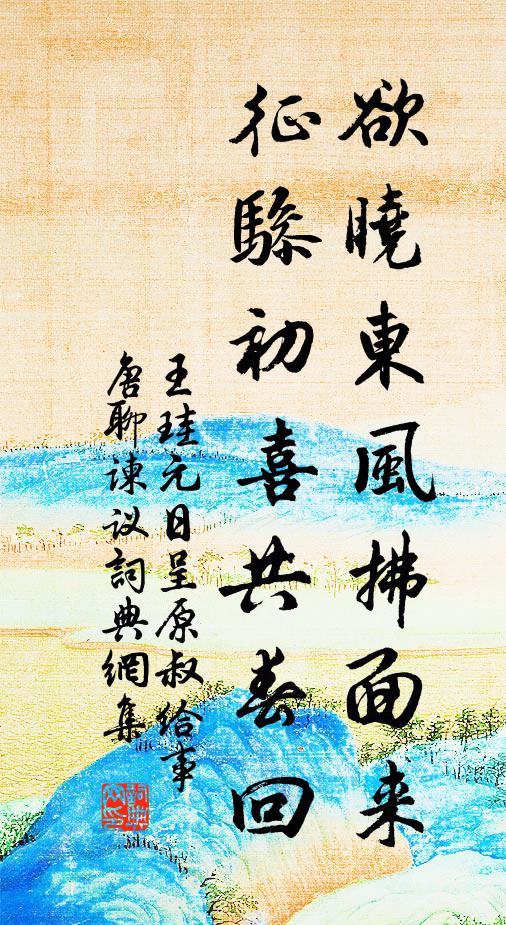 欲曉東風拂面来
征驂初喜共春回
王珪元日呈原叔給事
唐聊諫议詞典網集